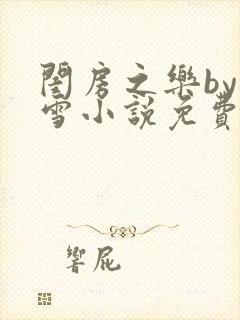 閨房之樂by
雪小説免費
響屁